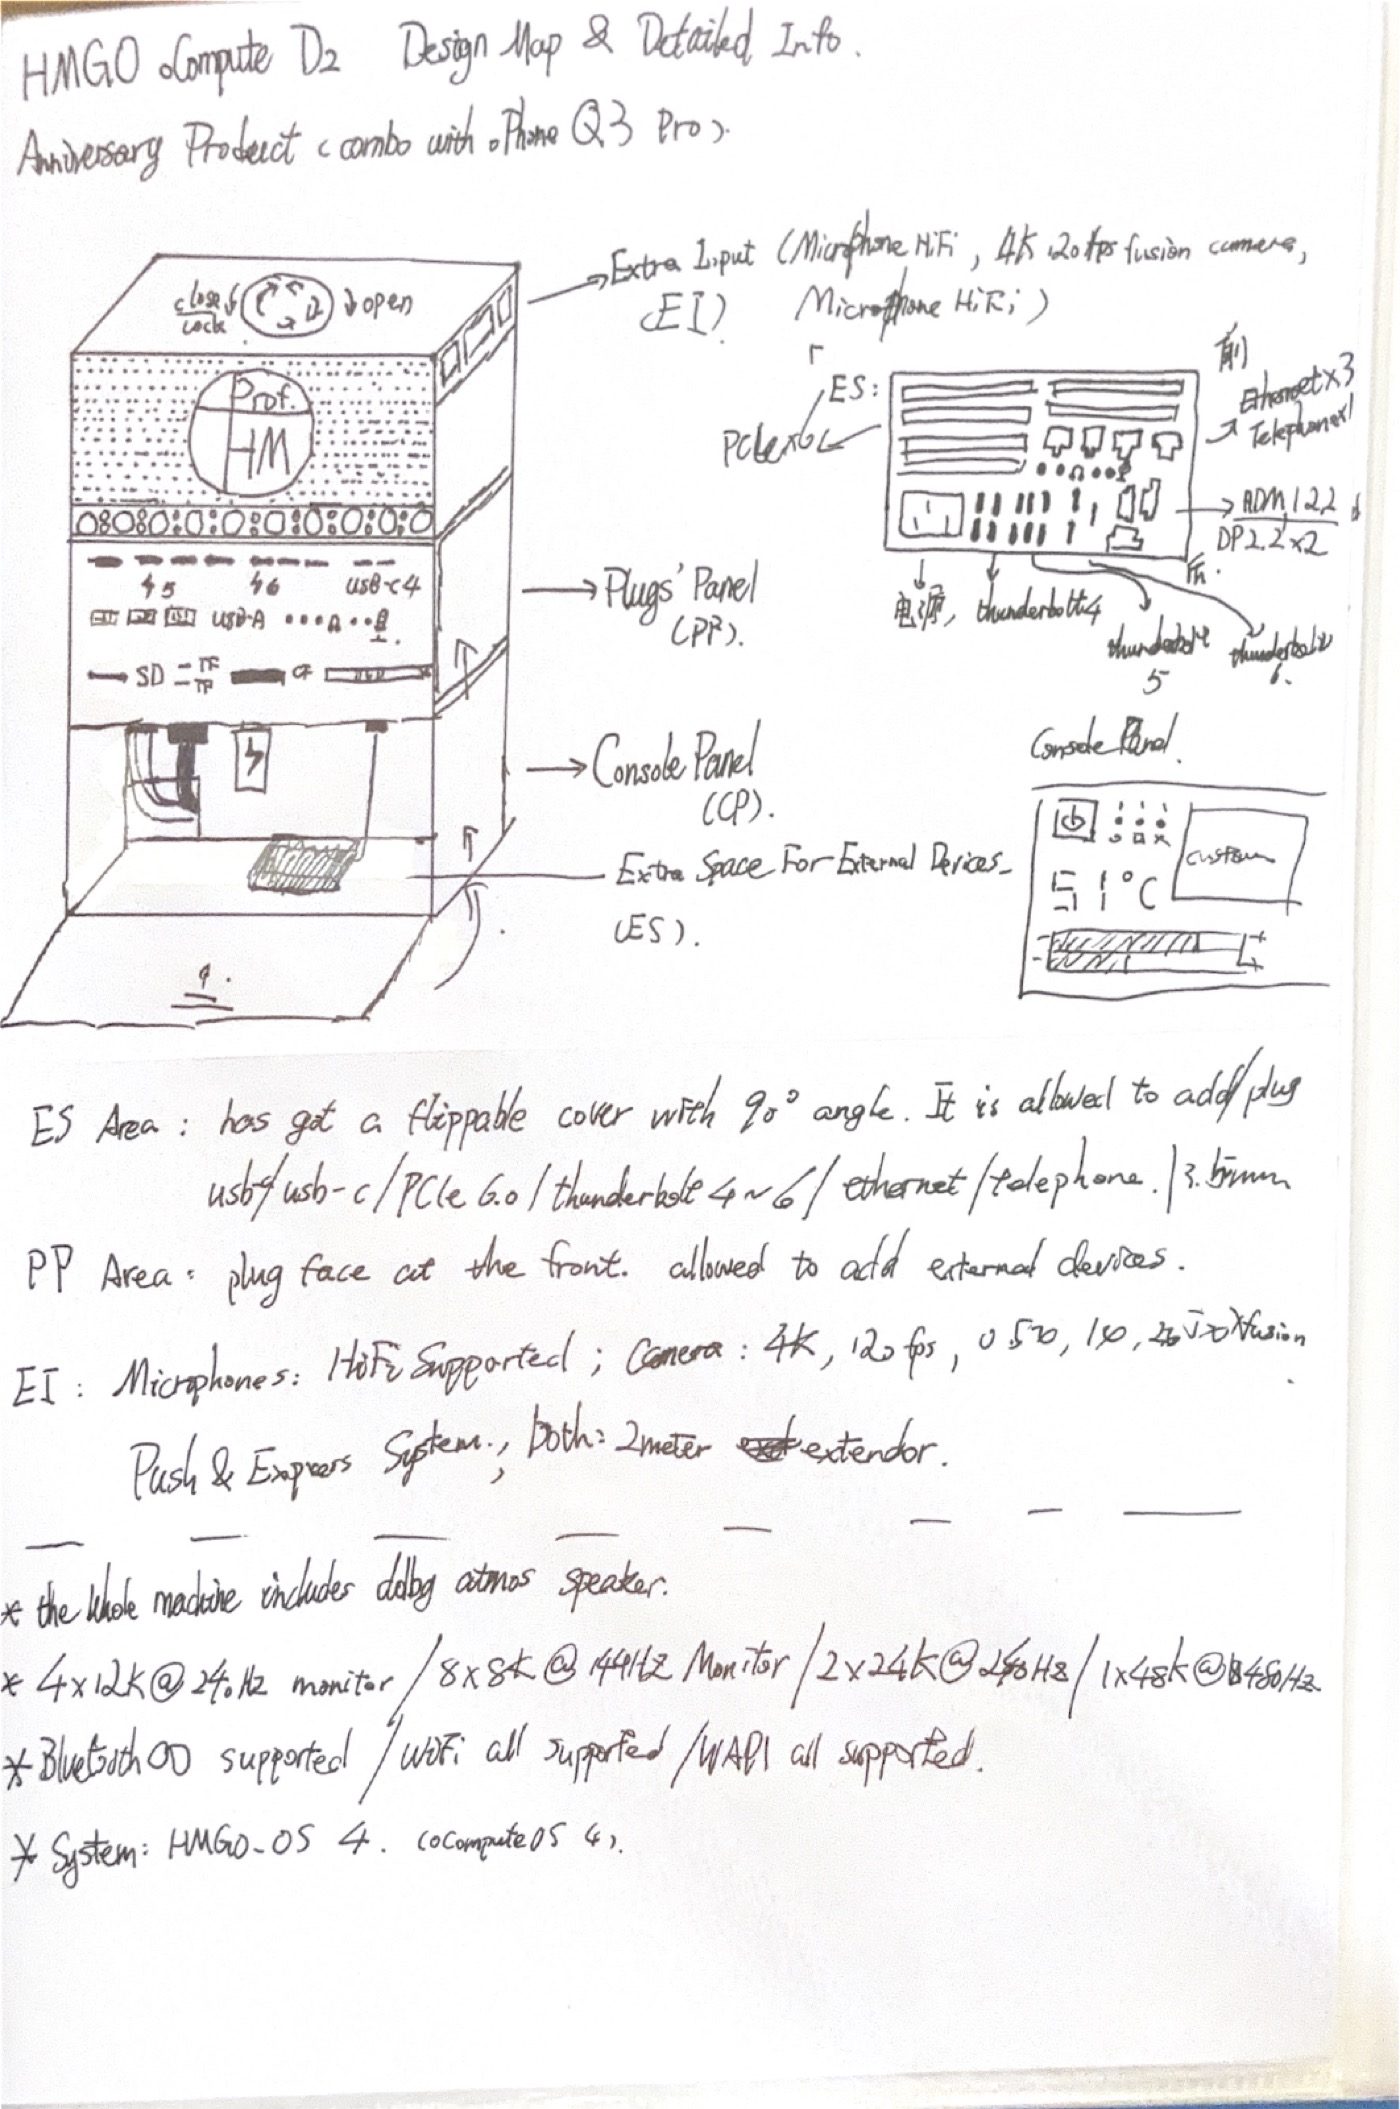 HMGO oCompute D2 Design Map & Detailed Info.
Anniversary Product (combo with oPhone Q3 Pro).
Extra Input (Microphone HiFi, 4K 120fps fusion camera,
(EI) Microphone HiFi)
close
lock
open
Prof.
HM
ES:
PCIe x6
前
Ethernet x3
Telephone x1
DP2.2 x2
后.
电源, thunderbolt4
thunderbolt
5
thunderbolt
6.
5 6 USB-C 4
USB-A
SD TF CF
TF
Plugs' Panel
(PP).
Console Panel
(CP).
Extra Space For External Devices
(ES).
Console Panel.
custom
51°C
ES Area: has got a flippable cover with 90° angle. It is allowed to add/plug
usb-a/usb-c/PCIe 6.0/thunderbolt 4~6/ethernet/telephone./3.5mm
PP Area: plug face at the front. allowed to add external devices.
EI: Microphones: HiFi Supported; Camera: 4K, 120fps, fusion
Push & Express System., both: 2meter extendor.
* the whole machine includes dolby atmos speaker.
* 4x12K@240Hz monitor/8x8K@144Hz Monitor/2x24K@240Hz/1x48K@480Hz
* Bluetooth OD supported/WiFi all supported/WAPI all supported.
* System: HMGO-OS 4. (oComputeOS 4).